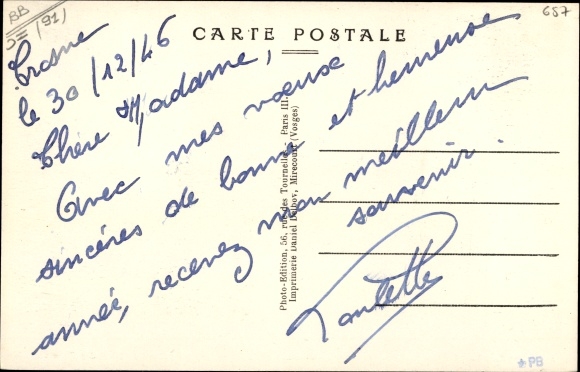 BB
(91)
657
CARTE POSTALE
Crosne
le 30/12/46
Chère Madame,
Avec mes vœux
sincères de bonne et heureuse
année, recevez mon meilleur
souvenir.
Paulette
Photo-Edition, 56, rue des Tournelles, Paris III.
Imprimerie Daniel Delboy, Mirecourt (Vosges)
*PB